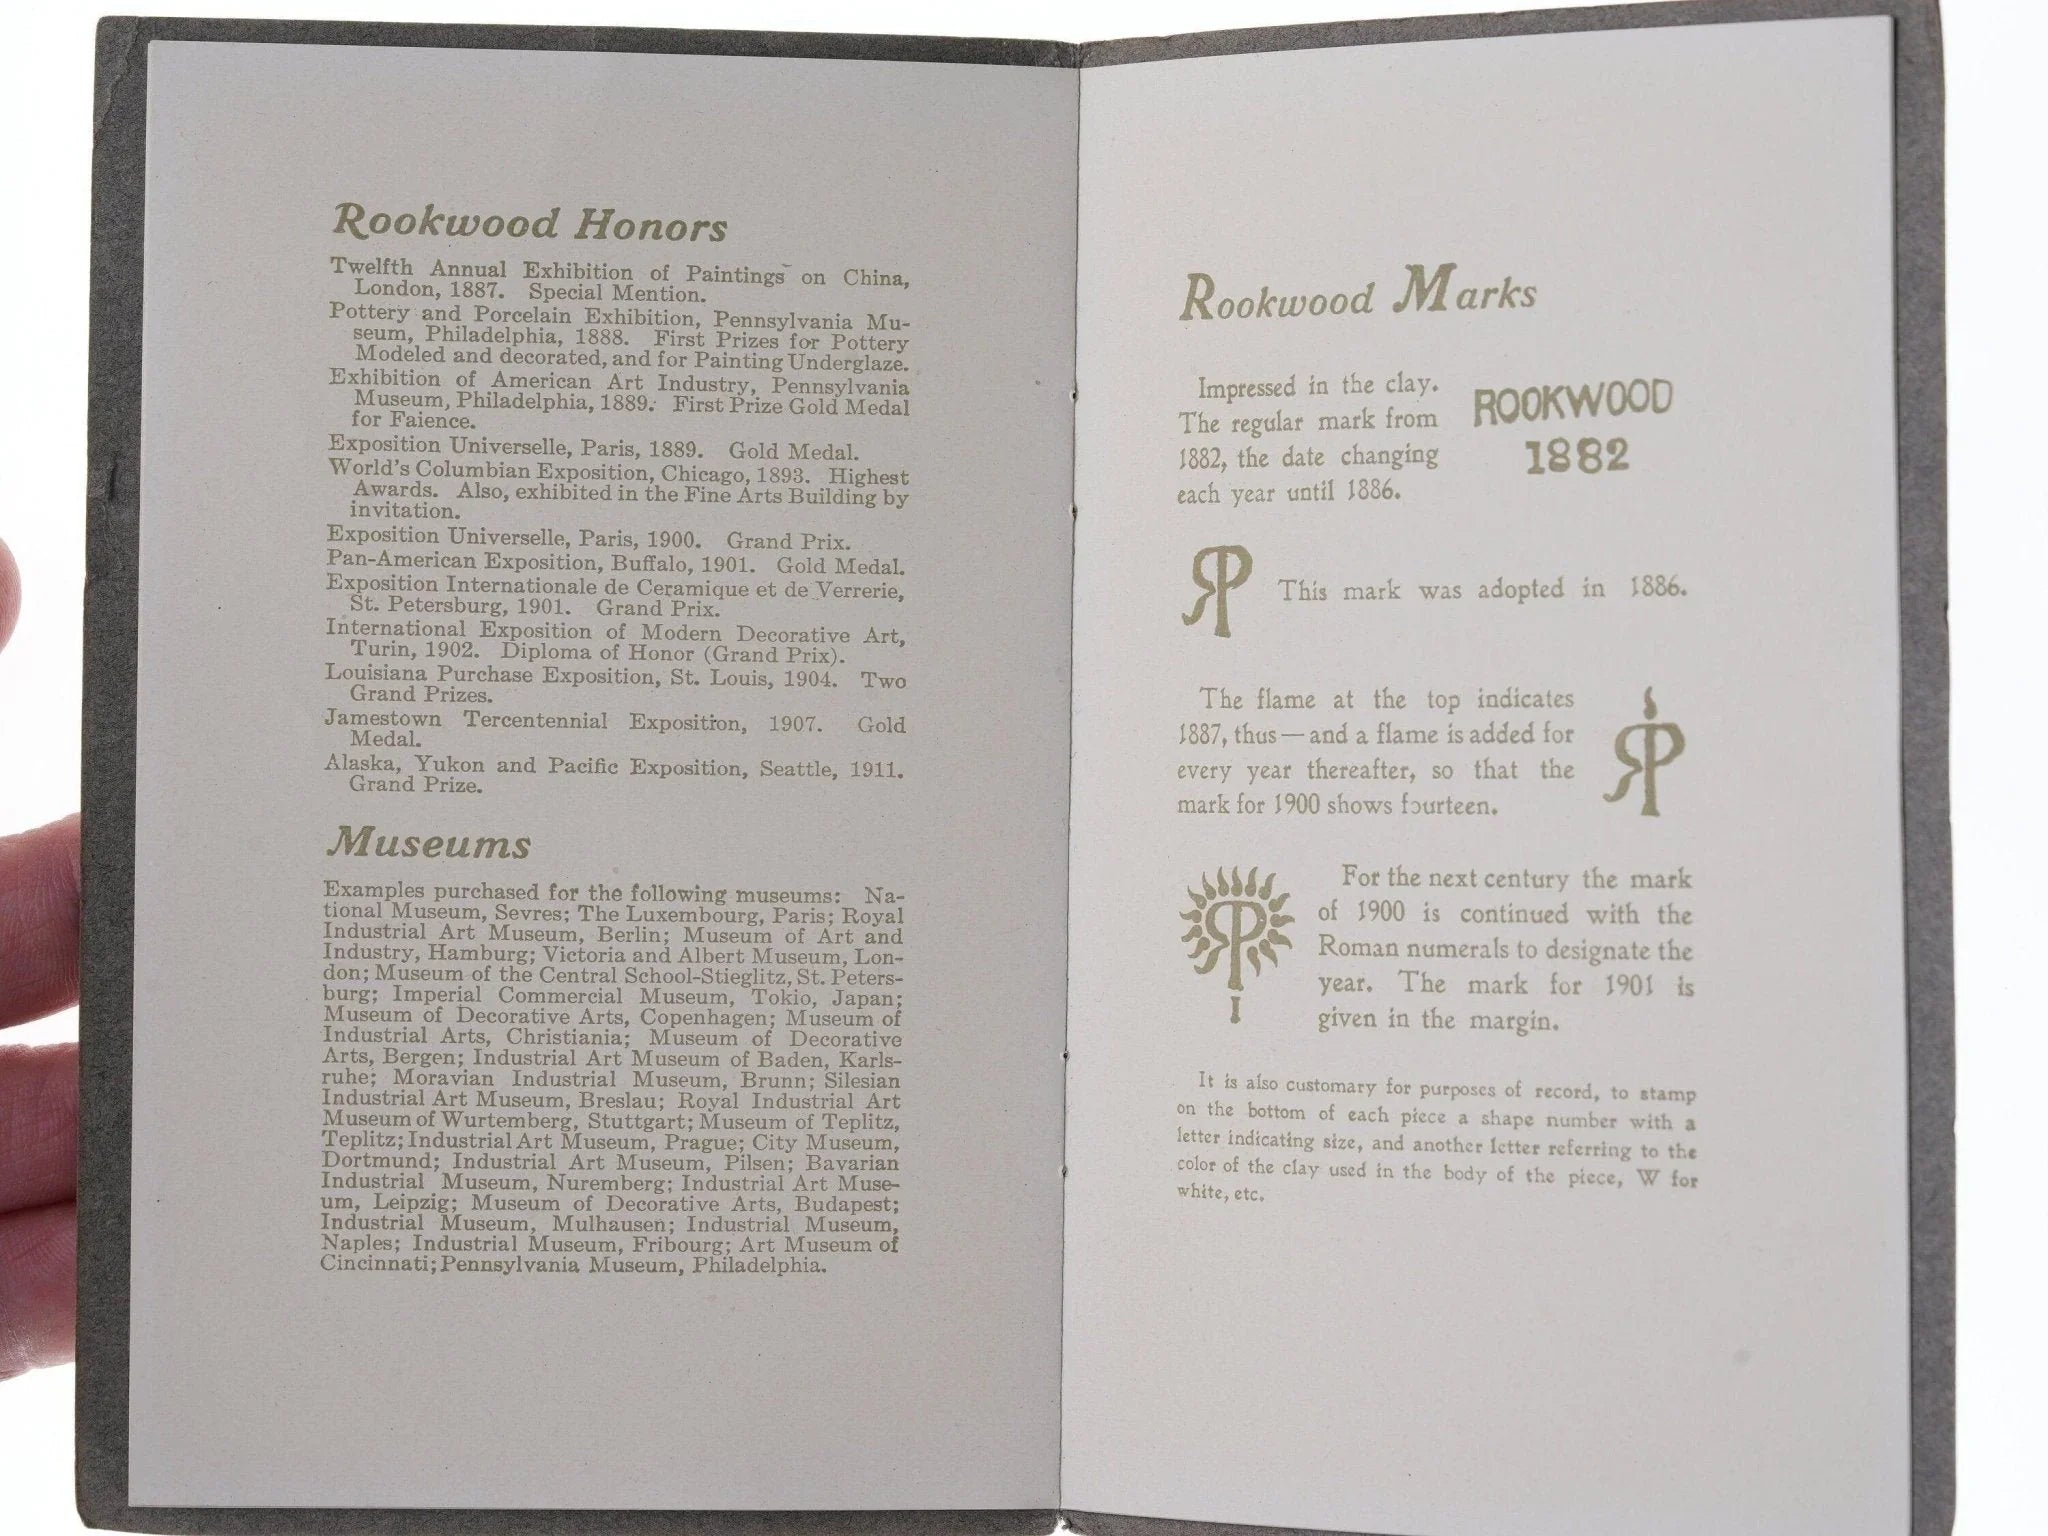 Rookwood Honors
Twelfth Annual Exhibition of Paintings on China,
London, 1887. Special Mention.
Pottery and Porcelain Exhibition, Pennsylvania Mu-
seum, Philadelphia, 1888. First Prizes for Pottery
Modeled and decorated, and for Painting Underglaze.
Exhibition of American Art Industry, Pennsylvania
Museum, Philadelphia, 1889. First Prize Gold Medal
for Faience.
Exposition Universelle, Paris, 1889. Gold Medal.
World's Columbian Exposition, Chicago, 1893. Highest
Awards. Also, exhibited in the Fine Arts Building by
invitation.
Exposition Universelle, Paris, 1900. Grand Prix.
Pan-American Exposition, Buffalo, 1901. Gold Medal.
Exposition Internationale de Ceramique et de Verrerie,
St. Petersburg, 1901. Grand Prix.
International Exposition of Modern Decorative Art,
Turin, 1902. Diploma of Honor (Grand Prix).
Louisiana Purchase Exposition, St. Louis, 1904. Two
Grand Prizes.
Jamestown Tercentennial Exposition, 1907. Gold
Medal.
Alaska, Yukon and Pacific Exposition, Seattle, 1911.
Grand Prize.
Museums
Examples purchased for the following museums: Na-
tional Museum, Sevres; The Luxembourg, Paris; Royal
Industrial Art Museum, Berlin; Museum of Art and
Industry, Hamburg; Victoria and Albert Museum, Lon-
don; Museum of the Central School-Stieglitz, St. Peters-
burg; Imperial Commercial Museum, Tokio, Japan;
Museum of Decorative Arts, Copenhagen; Museum of
Industrial Arts, Christiania; Museum of Decorative
Arts, Bergen; Industrial Art Museum of Baden, Karls-
ruhe; Moravian Industrial Museum, Brunn; Silesian
Industrial Art Museum, Breslau; Royal Industrial Art
Museum of Wurtemberg, Stuttgart; Museum of Teplitz,
Teplitz; Industrial Art Museum, Prague; City Museum,
Dortmund; Industrial Art Museum, Pilsen; Bavarian
Industrial Museum, Nuremberg; Industrial Art Muse-
um, Leipzig; Museum of Decorative Arts, Budapest;
Industrial Museum, Mulhausen; Industrial Museum,
Naples; Industrial Museum, Fribourg; Art Museum of
Cincinnati; Pennsylvania Museum, Philadelphia.
Rookwood Marks
Impressed in the clay.
The regular mark from
1882, the date changing
each year until 1886.
ROOKWOOD
1882
RP
This mark was adopted in 1886.
The flame at the top indicates
1887, thus — and a flame is added for
every year thereafter, so that the
mark for 1900 shows fourteen.
RP
RP
I
For the next century the mark
of 1900 is continued with the
Roman numerals to designate the
year. The mark for 1901 is
given in the margin.
It is also customary for purposes of record, to stamp
on the bottom of each piece a shape number with a
letter indicating size, and another letter referring to the
color of the clay used in the body of the piece, W for
white, etc.